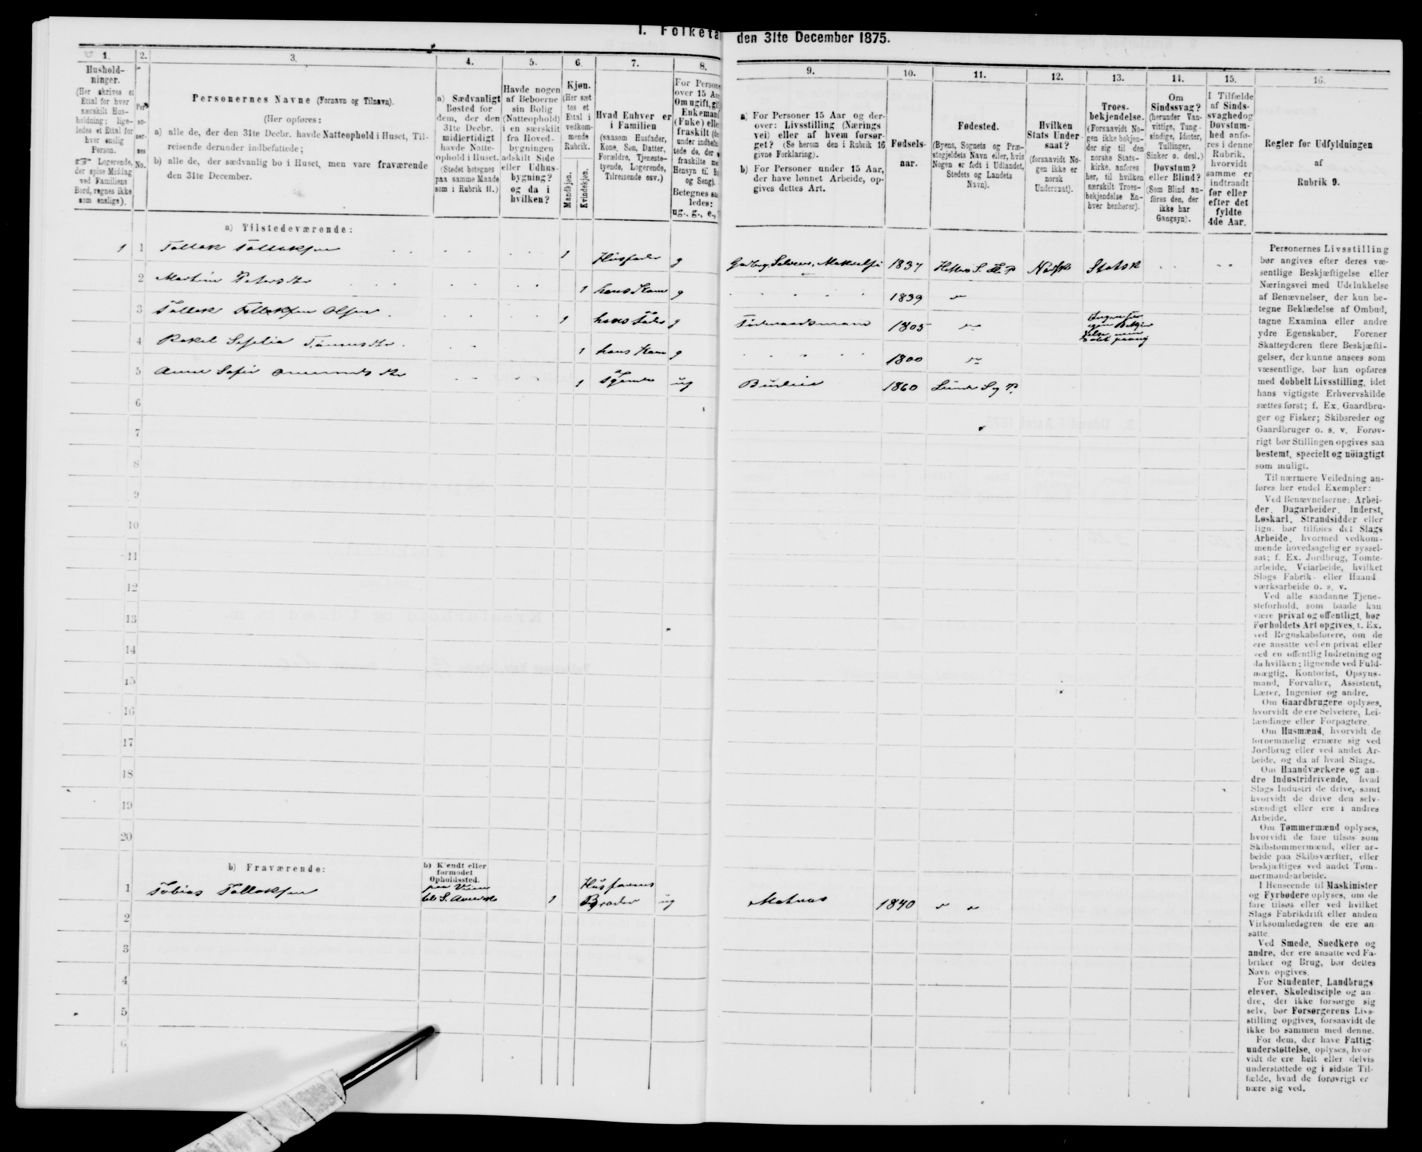 1. Folketæ
den 31te December 1875.
1.
2.
3.
4.
5.
6.
7.
8.
9.
10.
11.
12.
13.
14.
15.
16.
Hushold-
ninger.
(Her skrives et
Ettal for hver
særskilt Hus-
holdning; lige-
ledes et Ettal for
hver enslig
Person.
Logerende,
der spise Middag
ved Familiens
Bord, regnes ikke
som enslige).
Per-
so-
ner-
nes
No.
Personernes Navne (Fornavn og Tilnavn).
(Her opføres:
a) alle de, der den 31te Decbr. havde Natteophold i Huset, Til-
reisende derunder indbefattede;
b) alle de, der sædvanlig bo i Huset, men vare fraværende
den 31te December.
a) Sædvanligt
Bosted for
dem, der den
31te Decbr.
midlertidigt
havde Natte-
ophold i Huset.
(Stedet betegnes
paa samme Maade
som i Rubrik 11.)
Havde nogen
af Beboerne
sin Bolig
(Natteophold)
i en særskilt
fra Hoved-
bygningen
adskilt Side
eller Udhus-
bygning?
og da i
hvilken?
Kjøn.
(Her sæt-
tes et
Ettal i
vedkom-
mende
Rubrik.
Mandkjøn.
Kvindekjøn.
Hvad Enhver er
i Familien
(saasom Husfader,
Kone, Søn, Datter,
Forældre, Tjeneste-
tyende, Logerende,
Tilreisende osv.)
For Persone
over 15 Aa
Om ugift, gi
Enkemand
(Fuke) elle
fraskilt (de
under indbefa
Betegnes saa
ledes:
ug., g., e.,
a) For Personer 15 Aar og der-
over: Livsstilling (Nærings
vei) eller af hvem forsør-
get? (Se herom den i Rubrik 16
givne Forklaring).
b) For Personer under 15 Aar,
der have lønnet Arbeide, op-
gives dettes Art.
Fødsels-
aar.
Fødested.
(Byens, Sognets og Præ-
stegjeldets Navn eller, hvis
Nogen er født i Udlandet,
Stedets og Landets
Navn).
Hvilken
Stats Under-
saat?
(forsaavidt No-
gen ikke er
norsk
Undersaat).
Troes-
bekjendelse.
(Forsaavidt No-
gen ikke bekjen-
der sig til den
norske Stats-
kirke, anføres
her, til hvilken
særskilt Troes-
bekjendelse En-
hver henhører).
Om
Sindssvag?
(herunder Van-
vittige, Tung-
sindige, Idioter,
Tullinger,
Sinker o. desl.)
Døvstum?
eller Blind?
(Som Blind an-
føres den, der
ikke har
Gangsyn).
I Tilfælde
af Sinds-
svaghed og
Døvstum-
hed anfø-
res i denne
Rubrik,
hvorvidt
samme er
indtraadt
før eller
efter det
fyldte
4de Aar.
Regler for Udfyldningen
af
Rubrik 9.
a) Tilstedeværende:
1 1 Tollak Tollaksen 1 Husfader g 1837 Norsk Statsk
2 1 hans Kone g 1839
3 Tollak Tollaksen Olsen 1 hans Fader g Føderaadsmand 1805
4 1 hans Kone g 1800
5 1 ug Budeie 1860
6
7
8
9
10
11
12
13
14
15
16
17
18
19
20
b) Fraværende:
b) Kjendt eller
formodet
Opholdssted.
1 Tobias Tollaksen 1 Husfaders
Broder ug Matros 1840
2
3
4
5
6
Personernes Livsstilling
bør angives efter deres væ-
sentlige Beskjæftigelse eller
Næringsvei med Udelukkelse
af Benævnelser, der kun be-
tegne Beklædelse af Ombud,
tagne Examina eller andre
ydre Egenskaber. Forener
Skatteyderen flere Beskjæfti-
gelser, der kunne ansees som
væsentlige, bør han opføres
med dobbelt Livsstilling, idet
hans vigtigste Erhvervskilde
sættes først; f. Ex. Gaardbru-
ger og Fisker; Skibsreder og
Gaardbruger o. s. v. Forøv-
rigt bør Stillingen opgives saa
bestemt, specielt og nøiagtigt
som muligt.
Til nærmere Veiledning an-
føres her endel Exempler:
Ved Benævnelserne: Arbei-
der, Dagarbeider, Inderst,
Løskarl, Strandsidder eller
lign. bør tilføies det Slags
Arbeide, hvormed vedkom-
mende hovedsagelig er syssel-
sat; f. Ex. Jordbrug, Tomte-
arbeide, Veiarbeide, hvilket
Slags Fabrik- eller Haand
værksarbeide o. s. v.
Ved alle saadanne Tjene-
steforhold, som baade kan
være privat og offentligt, bør
Forholdets Art opgives, t. Ex.
ved Regnskabsførere, om de
ere ansatte ved en privat eller
ved en offentlig Indretning og
da hvilken; lignende ved Fuld-
mægtig, Kontorist, Opsyns-
mand, Forvalter, Assistent,
Lærer, Ingeniør og andre.
Om Gaardbrugere oplyses,
hvorvidt de ere Selveiere, Lei-
lændinge eller Forpagtere.
Om Husmænd, hvorvidt de
fornemmelig ernære sig ved
Jordbrug eller ved andet Ar-
beide, og da af hvad Slags.
Om Haandværkere og an-
dre Industridrivende, hvad
Slags Industri de drive, samt
hvorvidt de drive den selv-
stændigt eller ere i andres
Arbeide.
Om Tømmermænd oplyses,
hvorvidt de fare tilsøs som
Skibstømmermænd, eller ar-
beide paa Skibsværfter, eller
beskjæftiges ved andet Tøm-
mermand-arbeide.
I Henseende til Maskinister
og Fyrbødere oplyses, om de
fare tilsøs eller ved hvilket
Slags Fabrikdrift eller anden
Virksomhedsgren de ere an-
satte.
Ved Smede, Snedkere og
andre, der ere ansatte ved Fa-
briker og Brug, bør dettes
Navn opgives.
For Studenter, Landbrugs
elever, Skoledisciple og an
dre, der ikke forsørge sig
selv, bør Forsørgerens Livs-
stilling opgives, forsaavidt de
ikke bo sammen med denne.
For dem, der have Fattig-
understøttelse, oplyses, hvor-
vidt de ere helt eller delvis
understøttede og i sidste Til-
fælde, hvad de forøvrigt er-
nære sig ved.